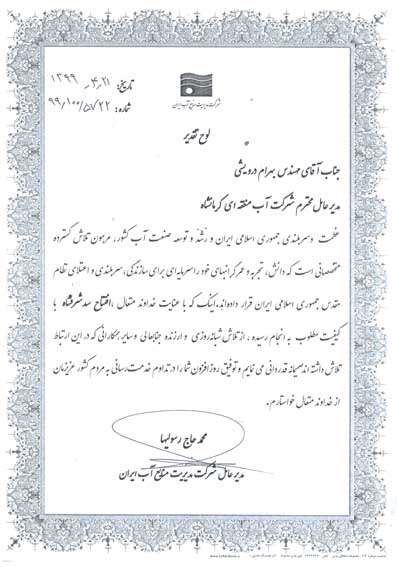 تاریخ: ۱۳۹۹-۴-۲۱
شماره: ۹۹/۱۰۰/۵۷/۲۲
شرکت مدیریت منابع آب ایران
لوح تقدیر
جناب آقای مهندس بهرام درویشی
مدیر عامل محترم شرکت آب منطقه ای کرمانشاه
عظمت و سربلندی جمهوری اسلامی ایران و رشد و توسعه صنعت آب کشور، مرهون تلاش گسترده
متخصصانی است که دانش، تجربه و عمر گرانبهای خود را سرمایه ای برای سازندگی، سربلندی و اعتلای نظام
مقدس جمهوری اسلامی ایران قرار داده‌اند. اینک که با عنایت خداوند متعال، افتتاح سد شرفشاه با
کیفیت مطلوب به انجام رسیده، از تلاش شبانه‌روزی و ارزنده جنابعالی و سایر همکارانی که در این ارتباط
تلاش داشته اند صمیمانه قدردانی می نمایم و توفیق روز افزون شما را در تداوم خدمت رسانی به مردم کشور عزیزمان
از خداوند متعال خواستارم.
محمد حاج رسولیها
مدیر عامل شرکت مدیریت منابع آب ایران